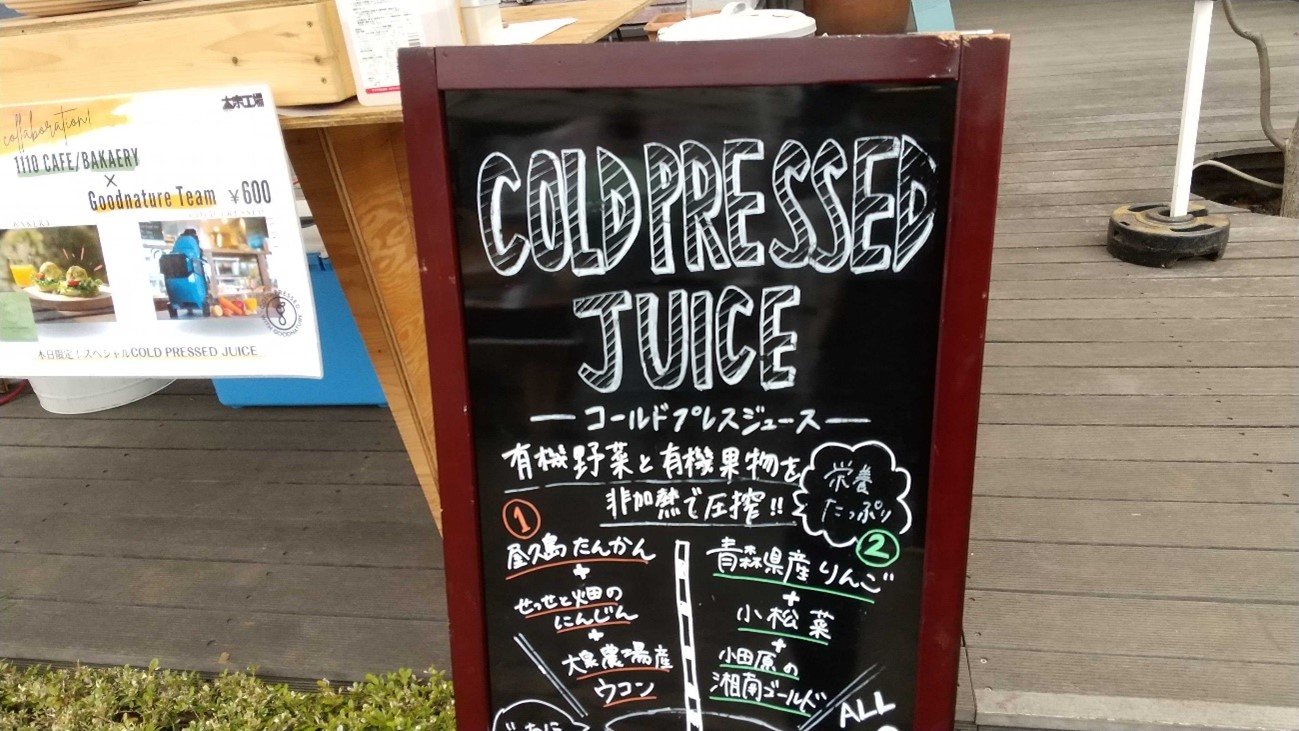 collaboration!
1110 CAFE/BAKAERY
×
Goodnature Team ¥600
BAKERY
本日限定！スペシャルCOLD PRESSED JUICE
COLD PRESSED
JUICE
コールドプレスジュース
有機野菜と有機果物を
非加熱で圧搾!!
栄養
たっぷり
1
屋久島たんかん
+
せっせと畑の
にんじん
+
大泉農場産
ウコン
2
青森県産りんご
+
小松菜
+
小田原の
湘南ゴールド
ALL